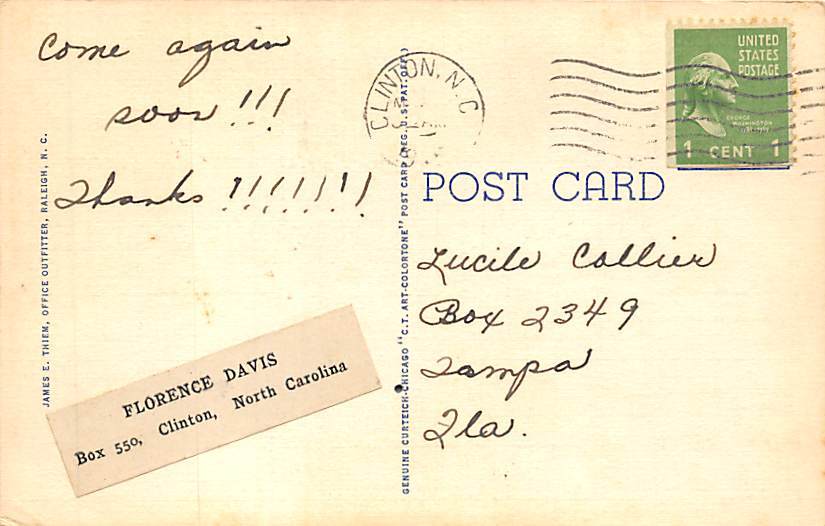 Come again
soon!!!
Thanks!!!!!!!
FLORENCE DAVIS
Box 550, Clinton, North Carolina
JAMES E. THIEM, OFFICE OUTFITTER, RALEIGH, N. C.
GENUINE CURTEICH-CHICAGO "C.T. ART-COLORTONE" POST CARD (REG. U. S. PAT. OFF.)
CLINTON, N.C
UNITED
STATES
POSTAGE
GEORGE
WASHINGTON
1 CENT 1
POST CARD
Lucile Collier
Box 2349
Tampa
Fla.